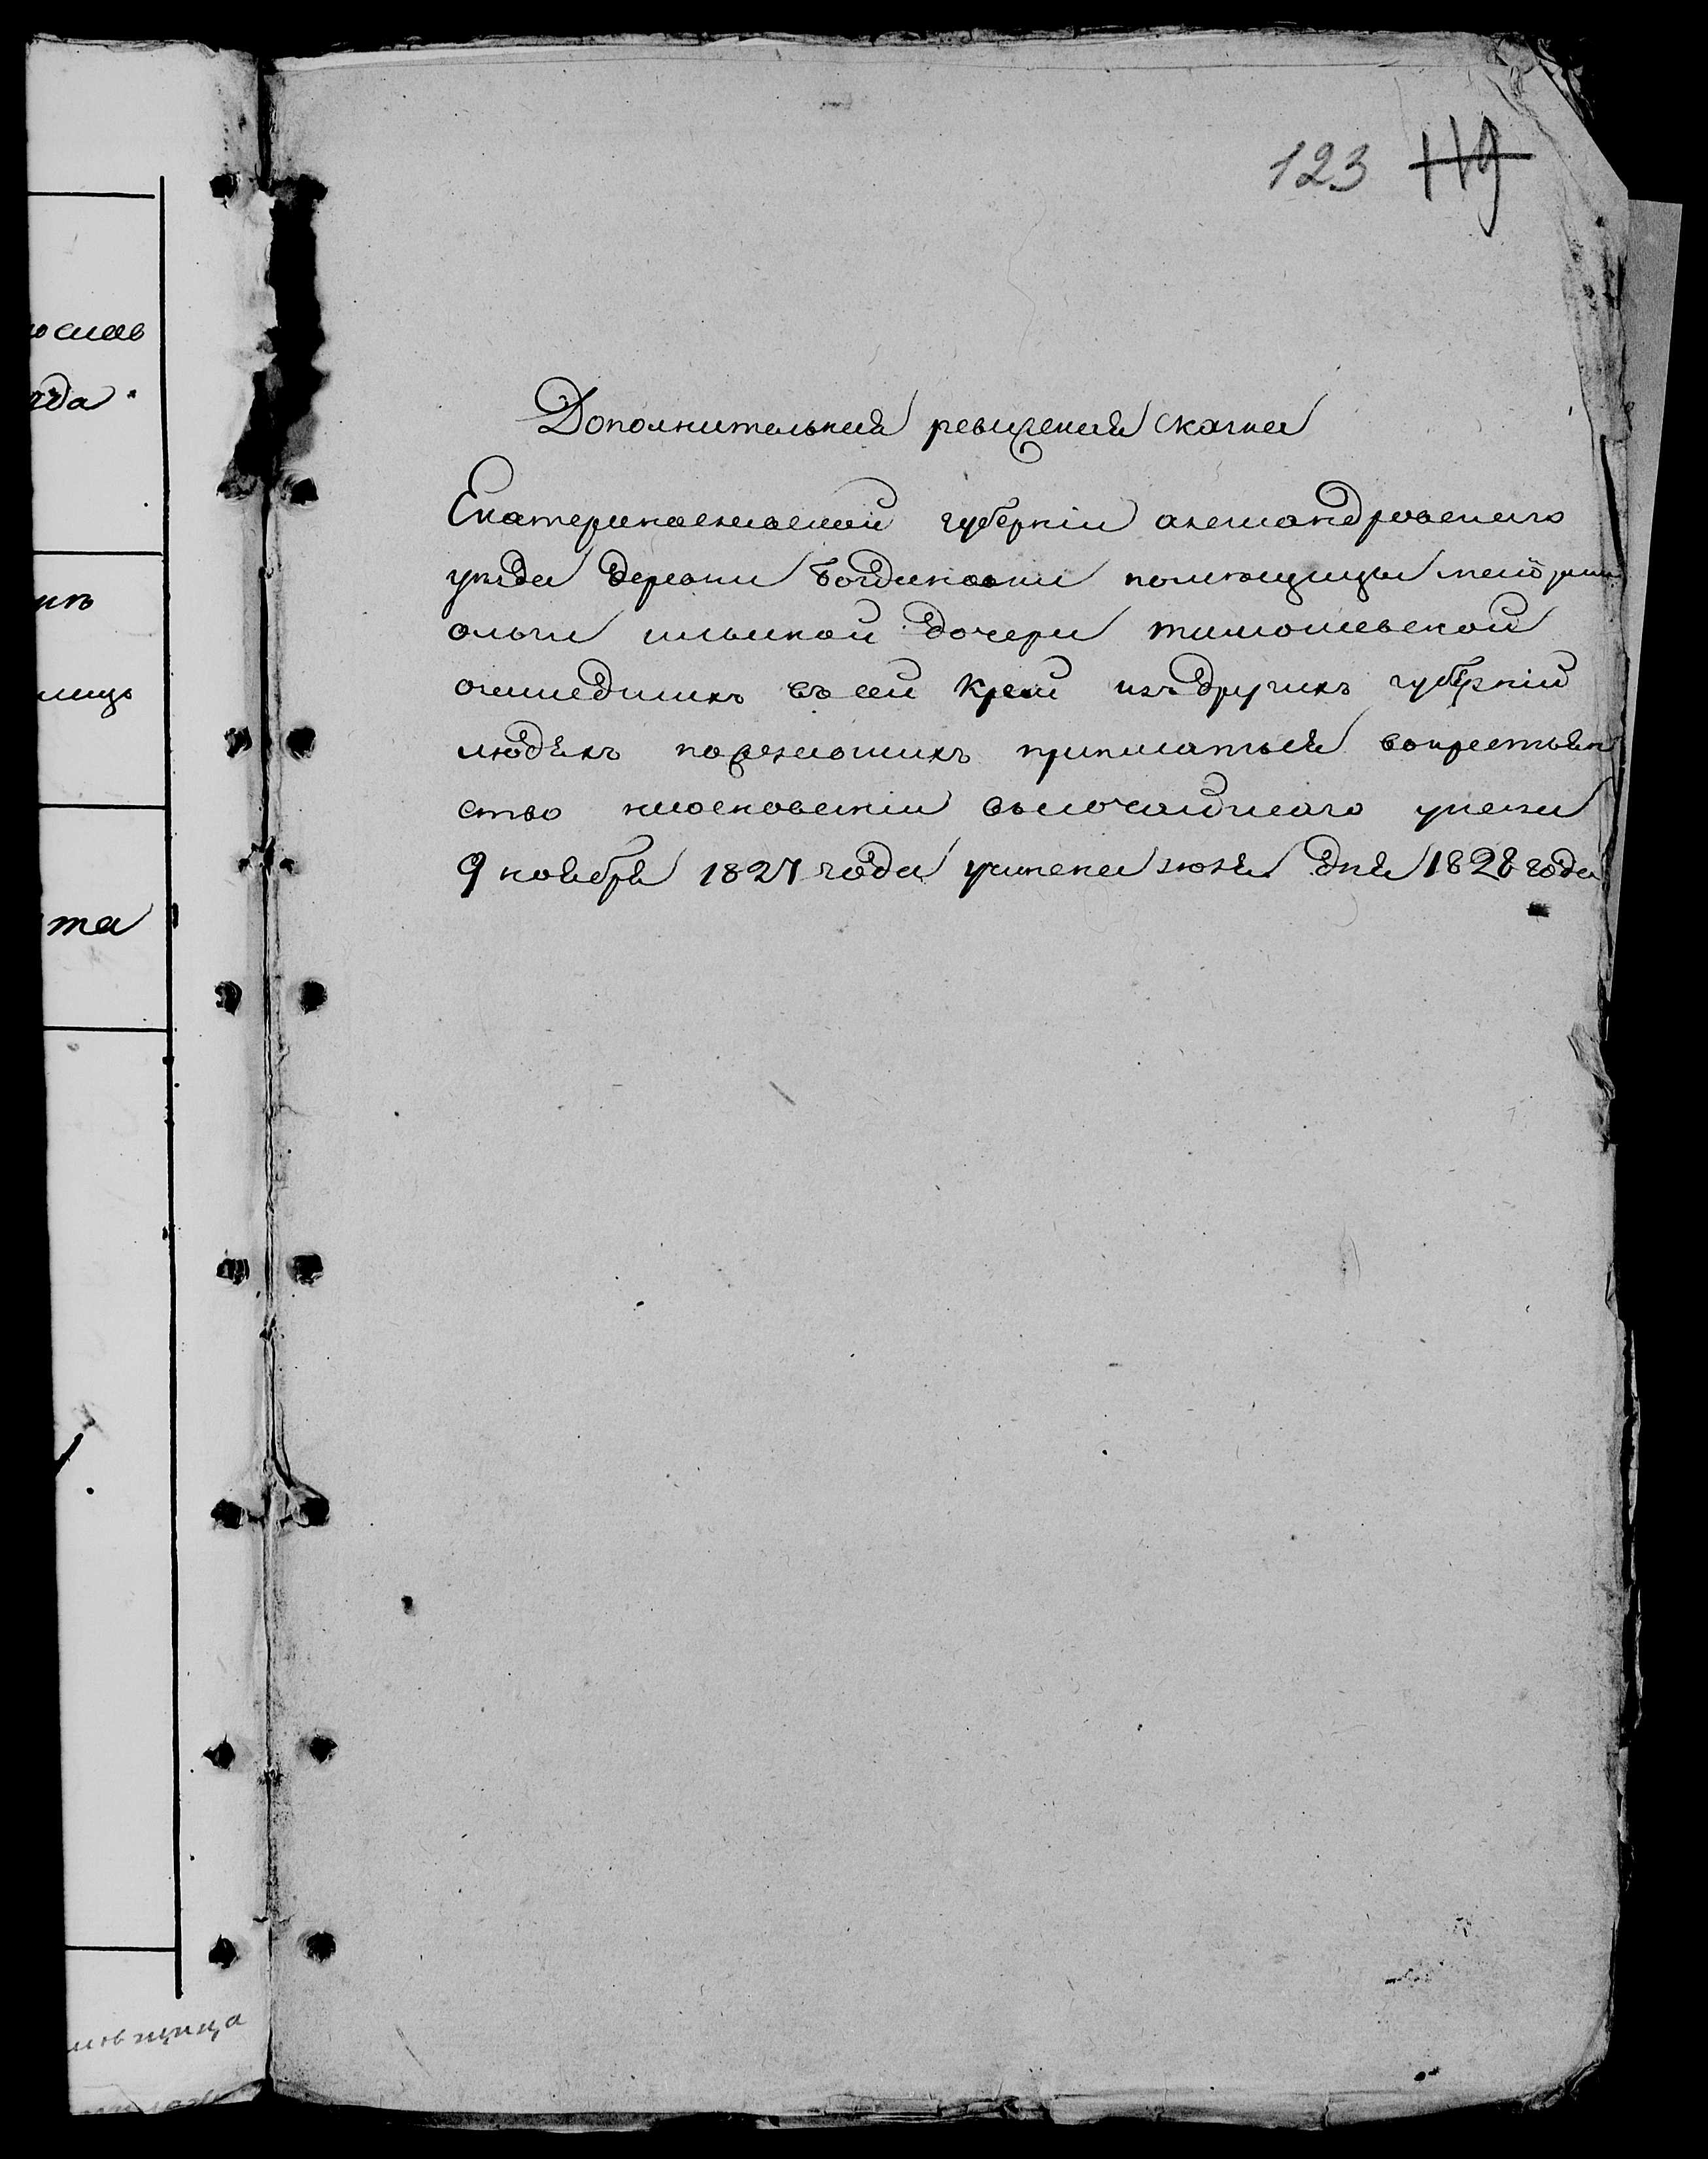 123 119
Дополнительная ревиская скаска
Екатеринославской губернии александровскаго
уезда деревни богдановки помещицы маіорши
ольги ильиной дочери тимошевской
зашедшихъ въ сей край изъ другихъ губерній
людяхъ пожелавшихъ приписаться вокрестьян
ство наосновании высочайшаго указа
9 ноября 1827 года учинена июня дня 1828 года
ослав
зда
ихъ
лицо
та
мѣщица